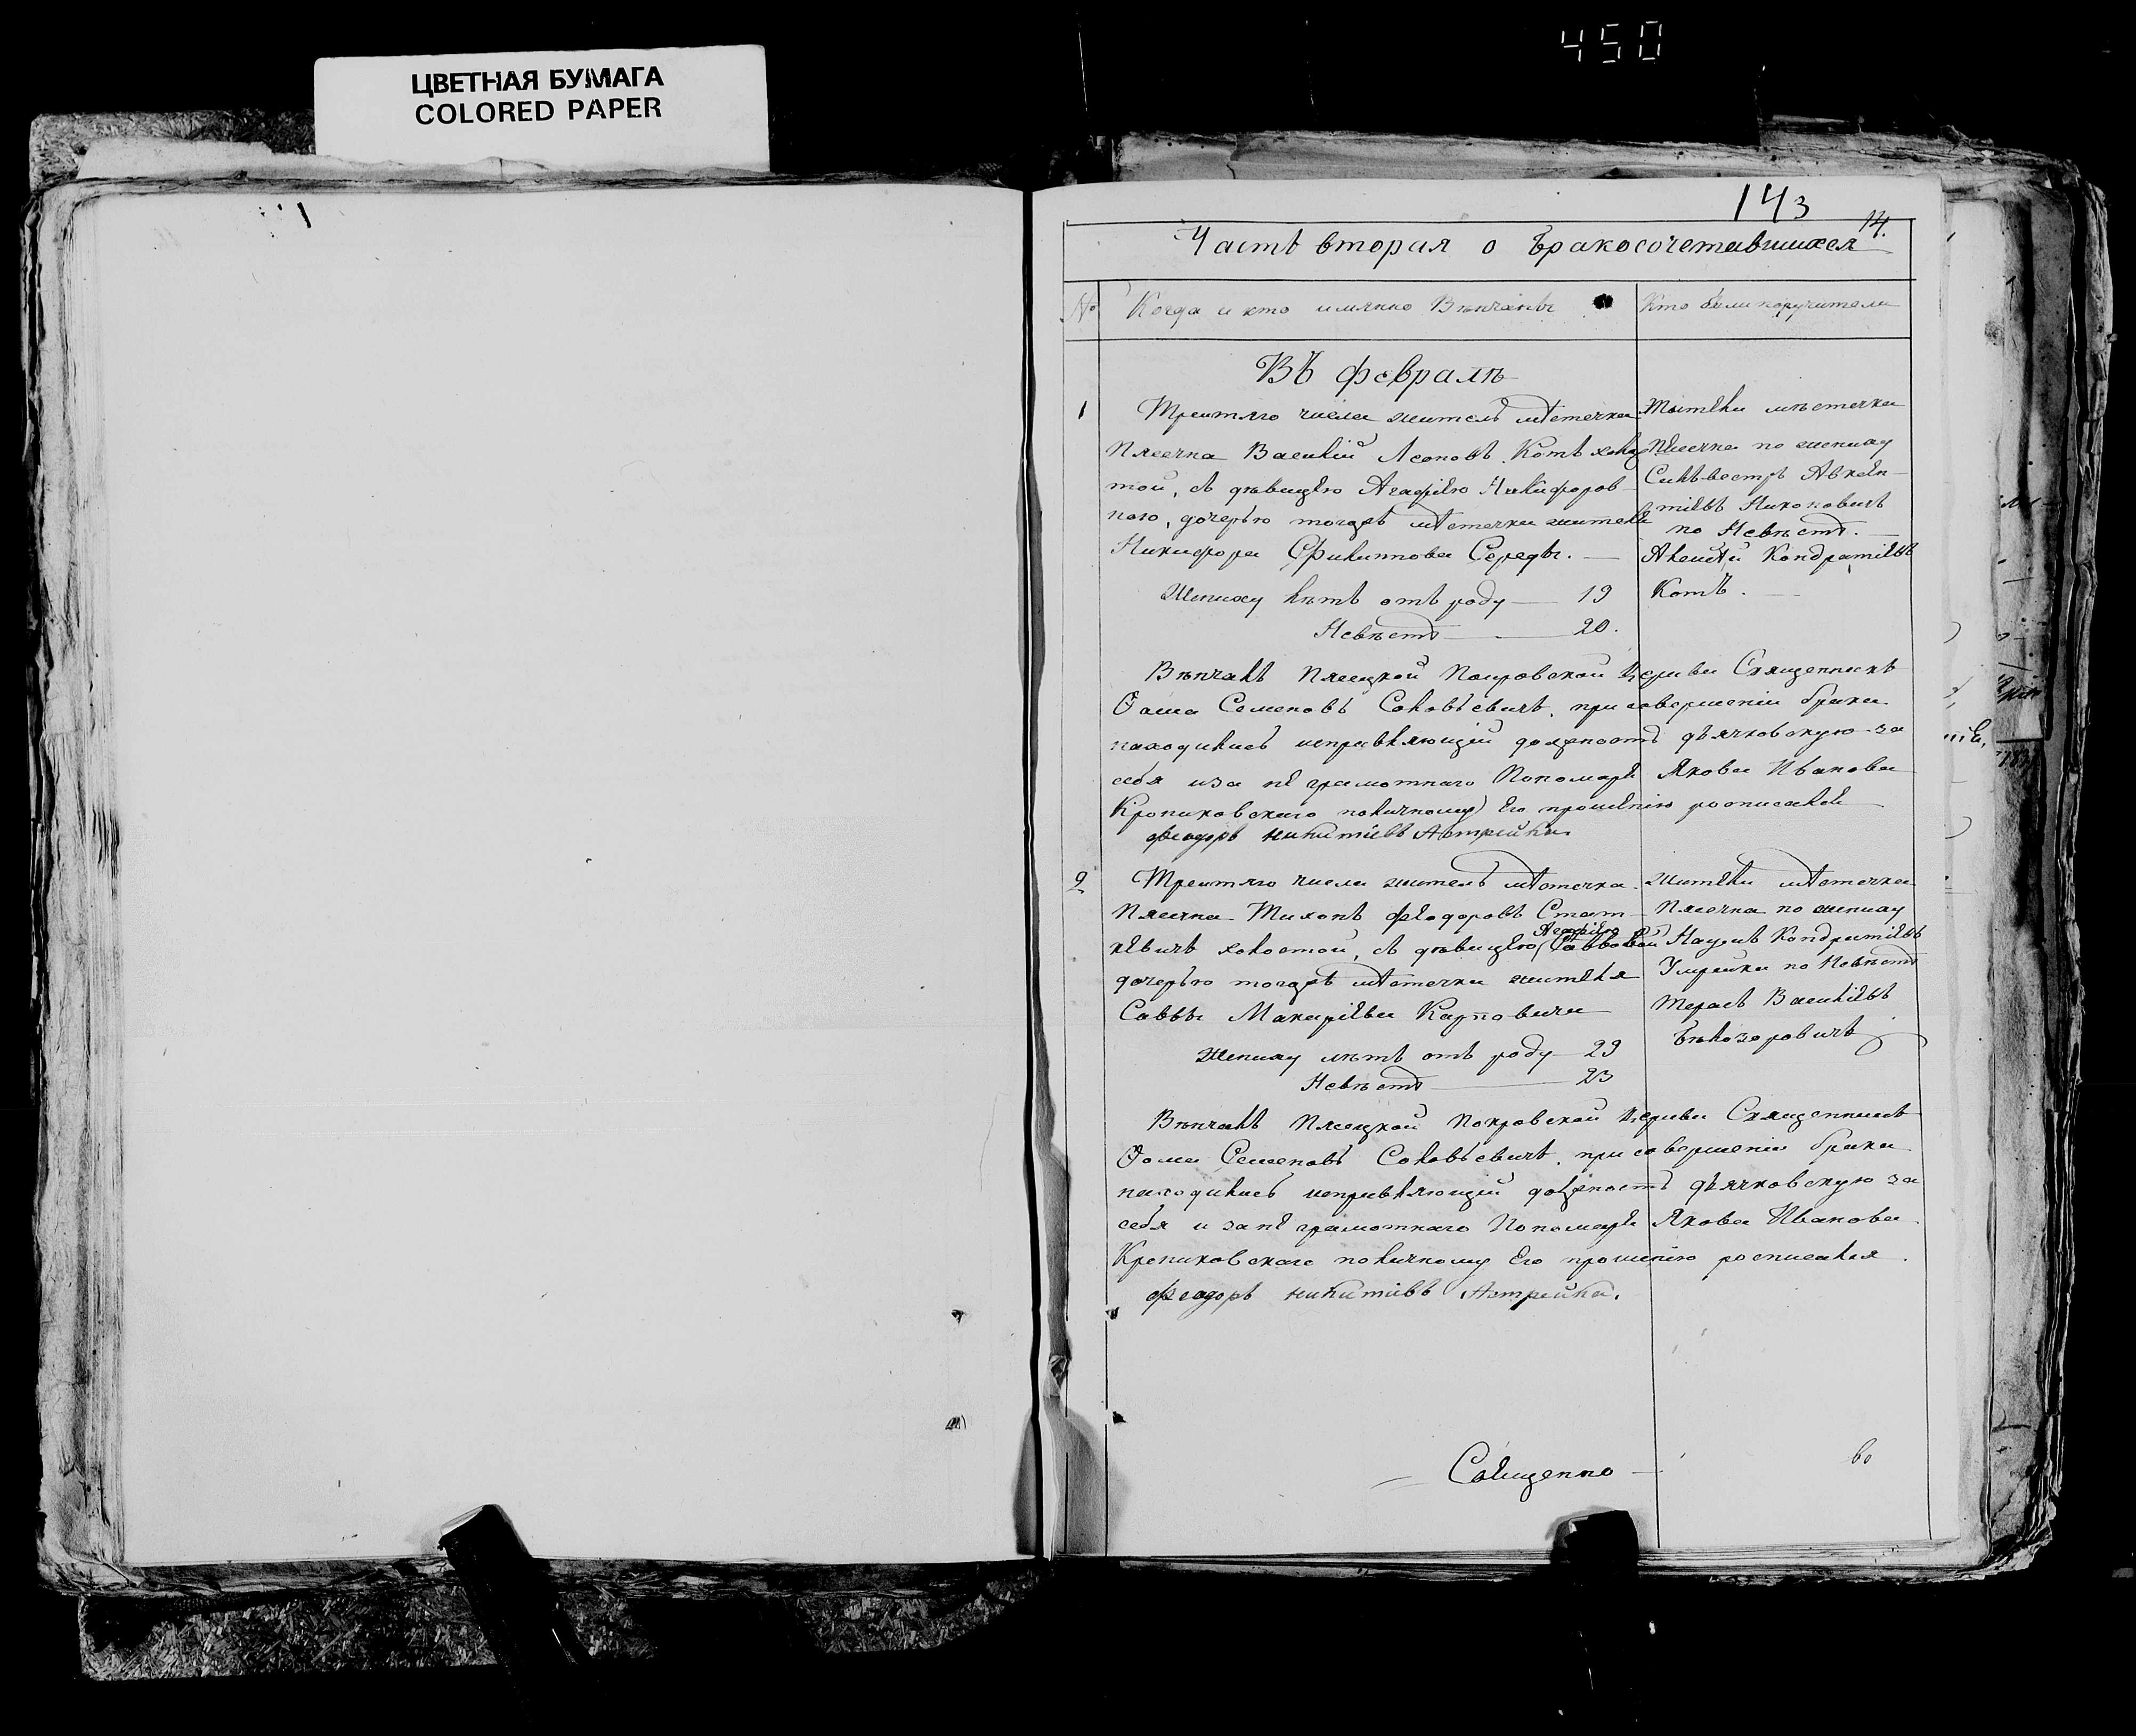 450
ЦВЕТНАЯ БУМАГА
COLORED PAPER
143
14.
Часть вторая о бракосочетавшихся
№ Когда и кто имянно Вѣнчанъ
Кто были поручители
Въ февралѣ
1 Третяго числа житель мѣстечка
Плесчна Василій Леоновъ Котъ холос
той, съ дѣвицею Агафіею Никифоров
ною, дочерью тогожъ мѣстечка жителя
Никифора Филиппова Середы.
Жениху лѣтъ отъ роду 19
Невѣстѣ 20.
Жители мѣстечка
по жениху
Сильвестръ Авксен
тіевъ Никоновичъ
по Невѣстѣ.
Алексѣй Кондратіевъ
Котъ.
Вѣнчалъ Плесцкой Покровской Церкви Священникъ
Фома Семеновъ Соловьевичъ, при совершеніи брака
находились исправляющій должность дьячковскую за
себя и за не грамотнаго Пономаря Якова Иванова
Кропиковскаго поличному Его прошенію росписался
феодоръ никитіевъ
2 Третяго числа житель мѣстечка
Плесчна Тихонъ феодоровъ Стат
кевичъ холостой, съ дѣвицею Агафіею Саввовой
дочерью тогожъ мѣстечка жителя
Саввы Макаріева Карповича
Жениху лѣтъ отъ роду 29
Невѣстѣ 23
Жители мѣстечка
Плесчна по жениху
Наумъ Кондратіевъ
по Невѣстѣ
Тарасъ Василіевъ
Бѣлозоровичъ
Вѣнчалъ Плесцкой Покровской Церкви Священникъ
Фома Семеновъ Соловьевичъ, при совершеніи брака
находились исправляющій должность дьячковскую за
себя и за не грамотнаго Пономаря Якова Иванова
Кропиковскаго поличному Его прошенію росписался.
феодоръ никитіевъ
Священно